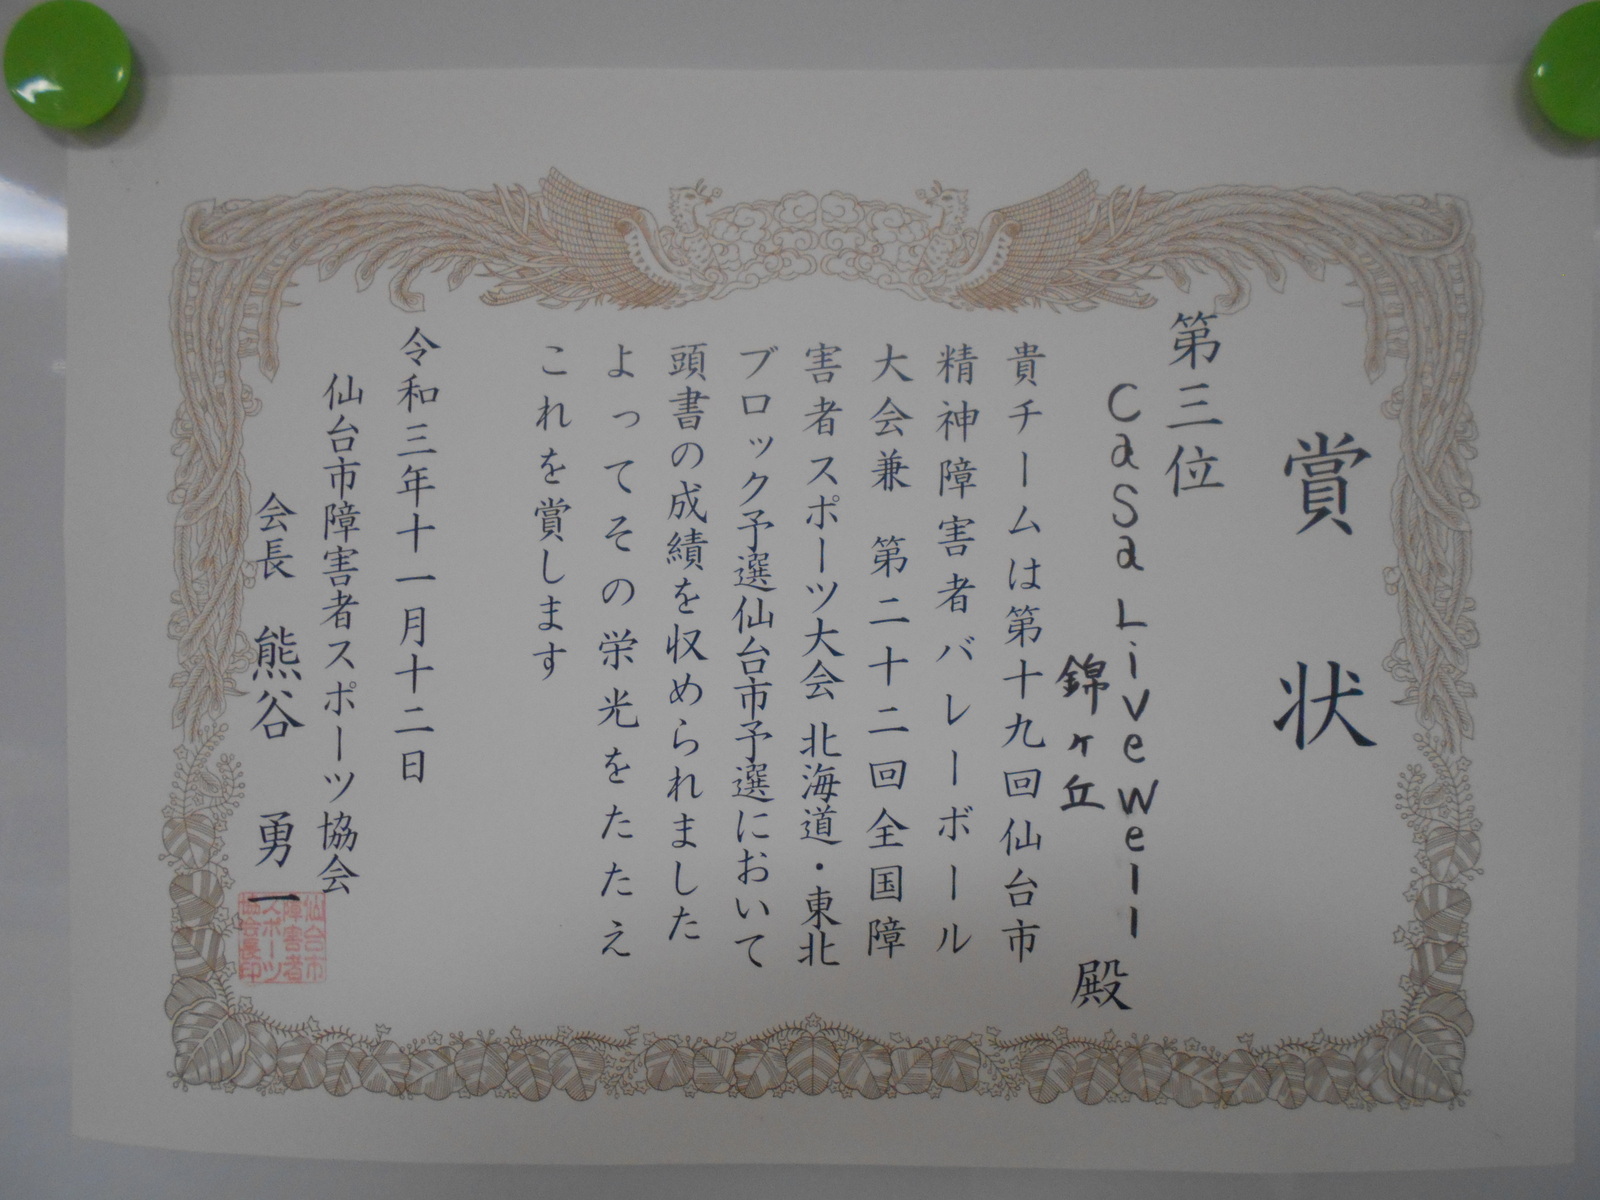 賞状
第三位
Casa Livewell
錦ヶ丘
殿
貴チームは第十九回仙台市
精神障害者バレーボール
大会兼 第二十二回全国障
害者スポーツ大会 北海道・東北
ブロック予選仙台市予選において
頭書の成績を収められました
よってその栄光をたたえ
これを賞します
令和三年十一月十二日
仙台市障害者スポーツ協会
会長 熊谷 勇一
仙台市
障害者
スポーツ
協会長印